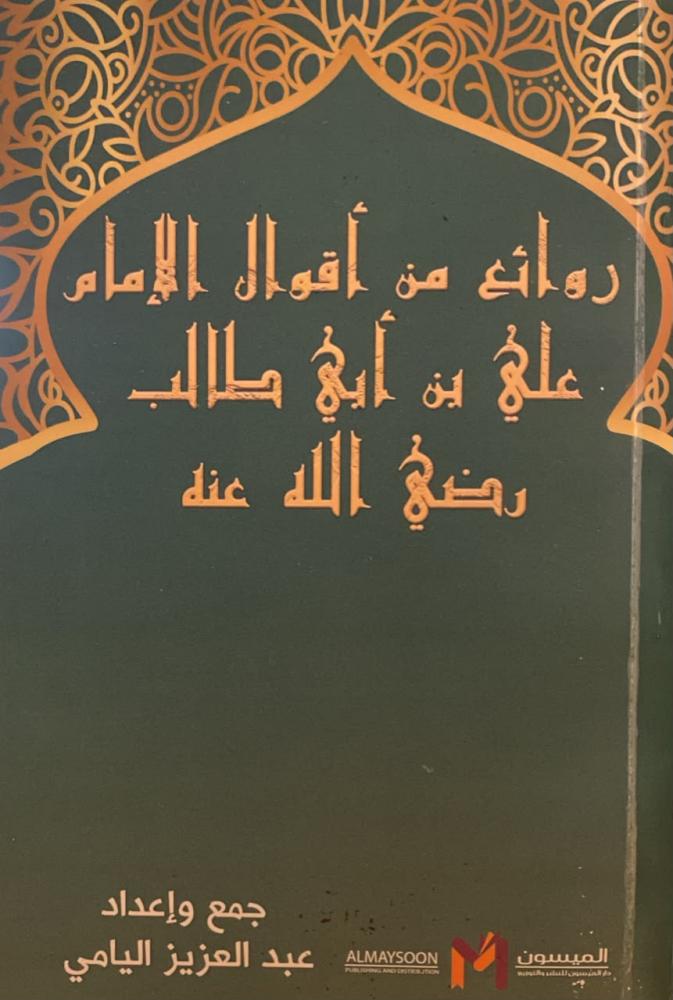 روائع من أقوال الإمام
علي بن أبي طالب
رضي الله عنه
جمع وإعداد
عبد العزيز اليامي
ALMAYSOON
PUBLISHING AND DISTRIBUTION
الميسون
دار الميسون للنشر والتوزيع